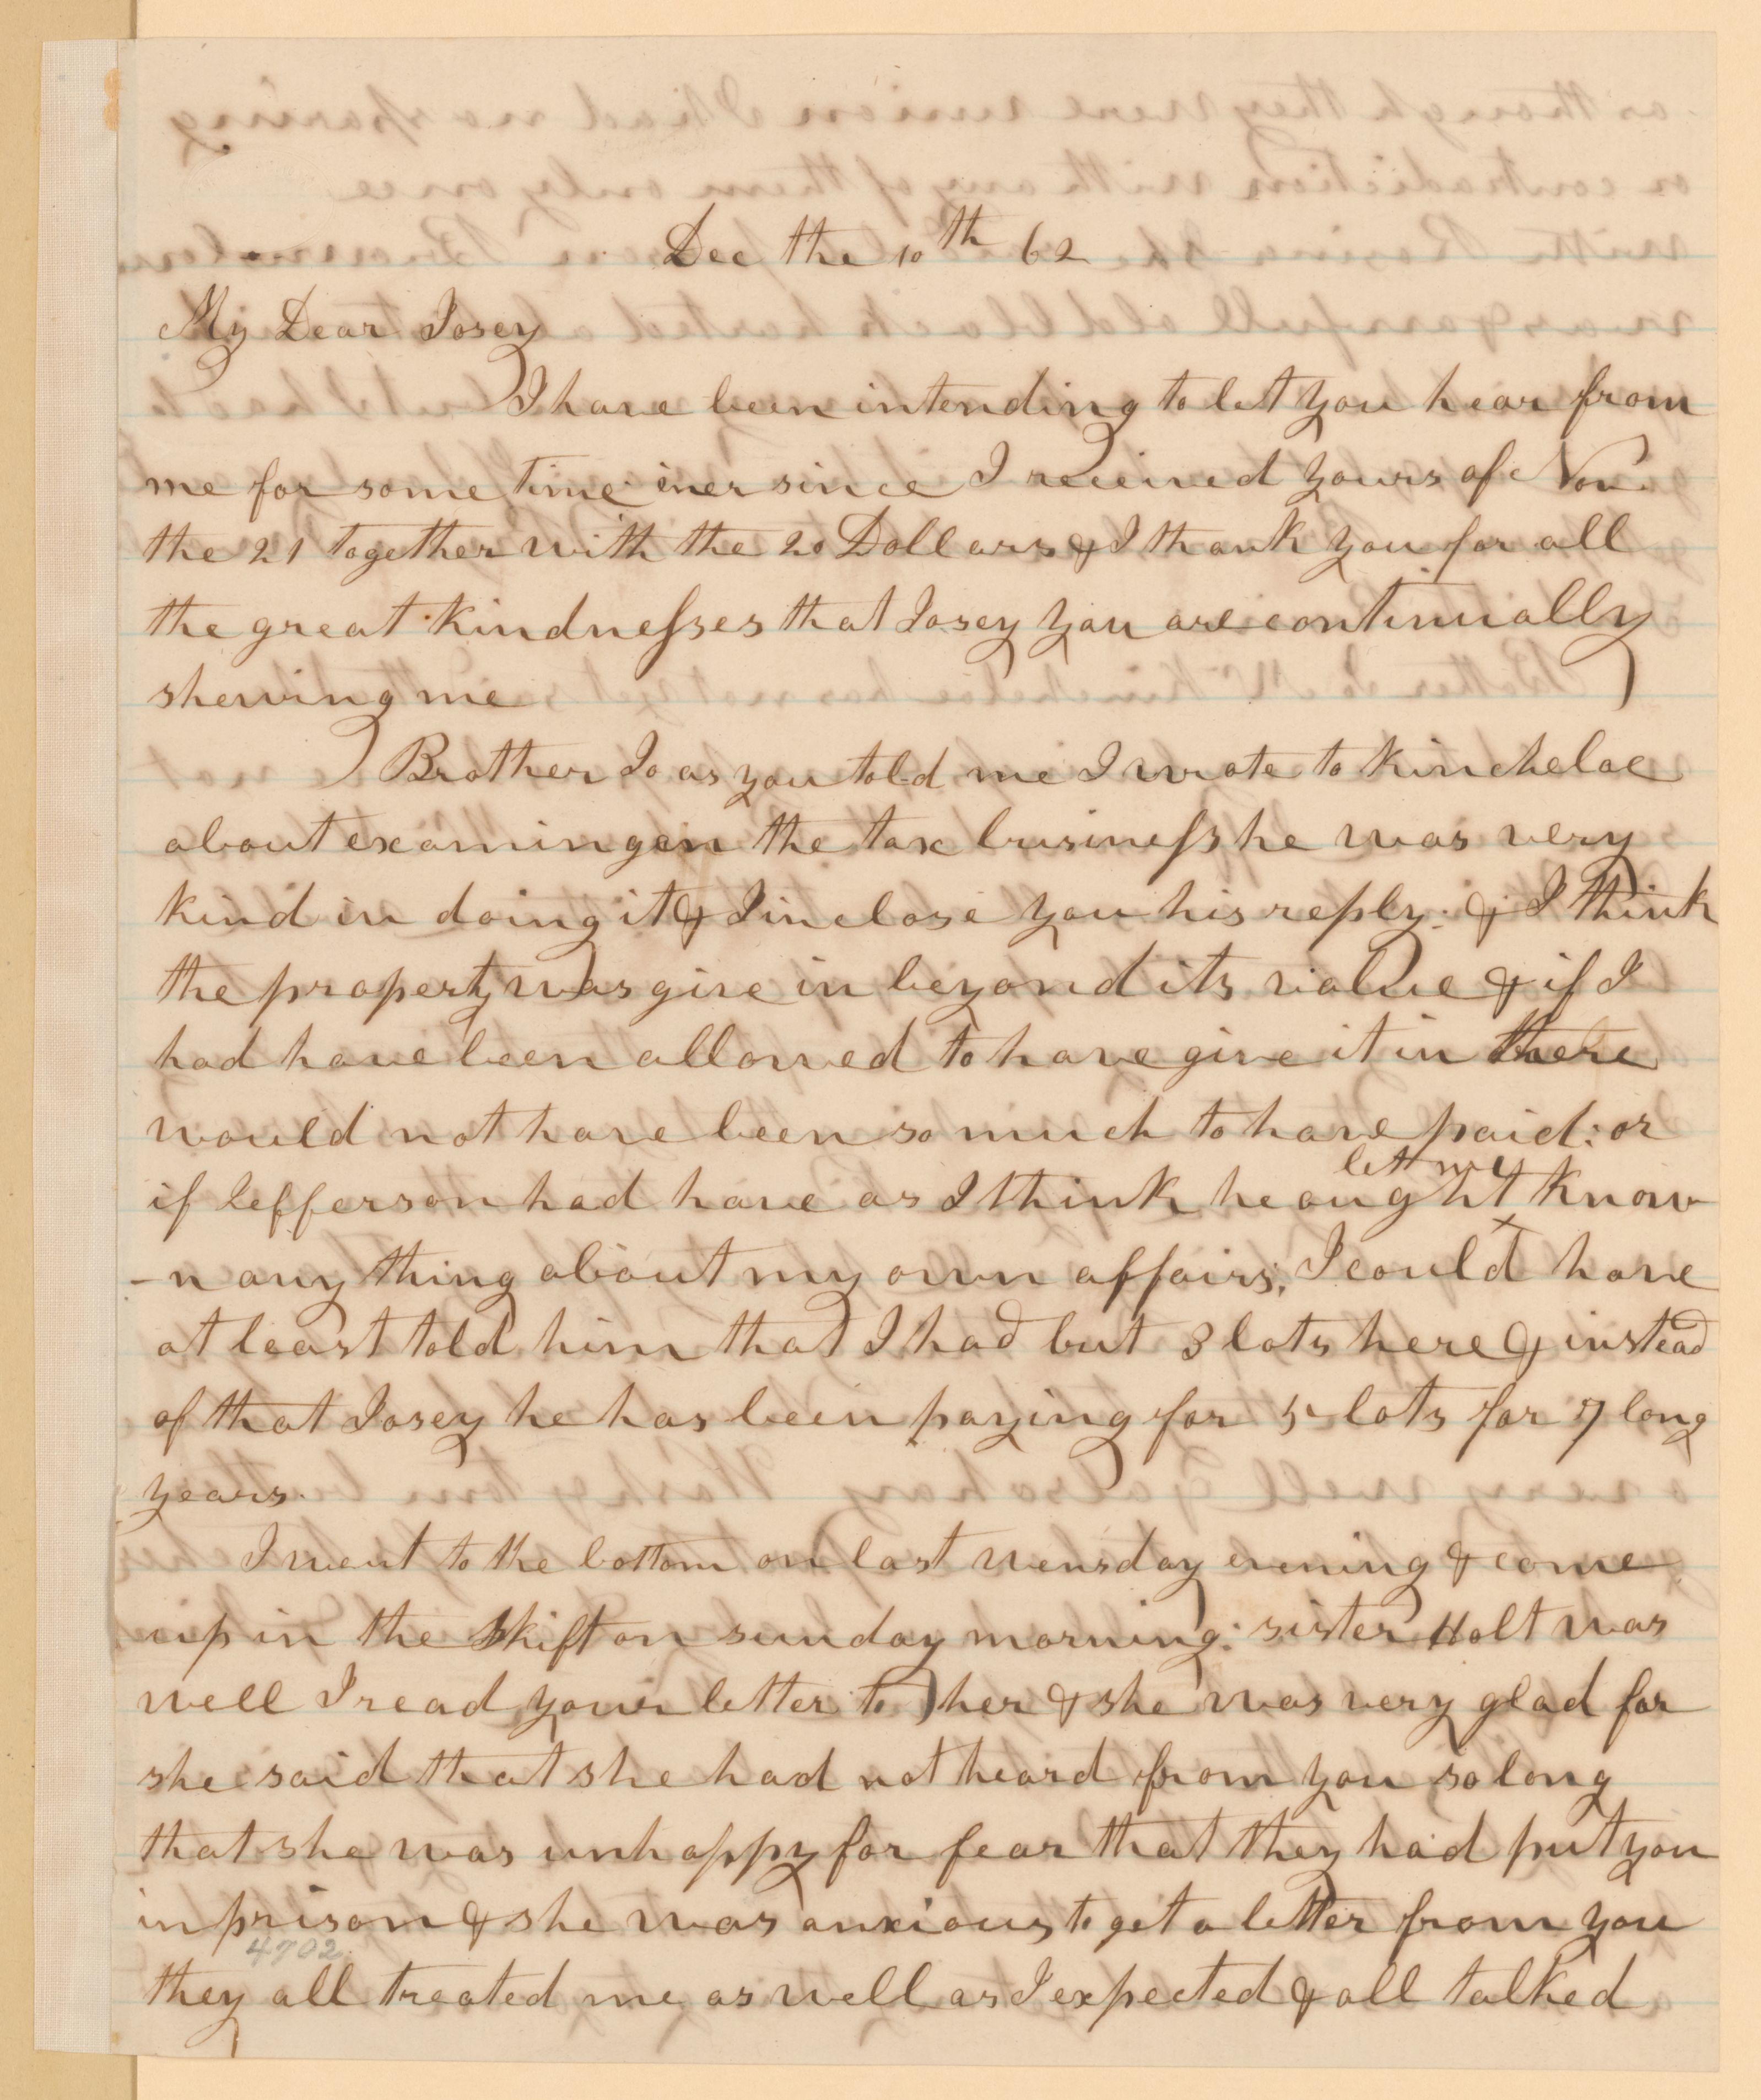 Dec the 10th 62
My Dear Josey
I have been intending to let you hear from
me for some time ever since I received yours of Nov.
the 21 together with the 20 Dollars & I thank you for all
the great kindnesses that Josey you are continually
shewing me
Brother Jo as you told me I wrote to Kincheloe
about examingen the tax business he was very
kind in doing it & I inclose you his reply. & I think
the property was give in beyond its value & if I
had have been allowed to have give it in there
would not have been so much to have paid: or
if Jefferson had have as I think he ought let me know
-n any thing about my own affairs, I could have
at least told him that I had but 3 lots here & instead
of that Josey he has been paying for 5 lots for 7 long
years.
I went to the bottom on last wensday evening & come
up in the skift on sunday morning: sister Holt was
well I read your letter to her & she was very glad for
she said that she had not heard from you so long
that she was unhappy for fear that they had put you
in prison & she was anxious to get a letter from you
4702.
they all treated me as well as I expected & all talked